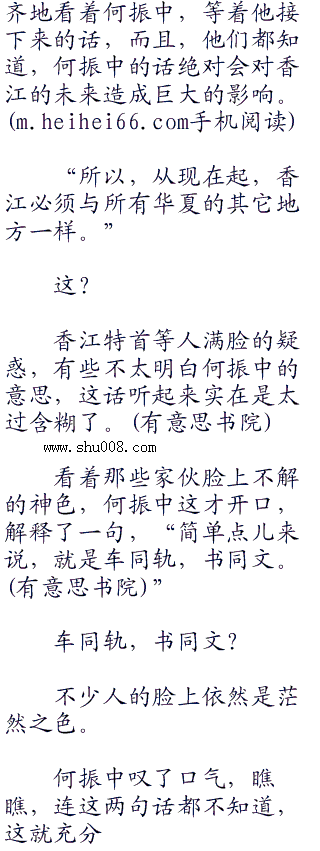 齐地看着何振中，等着他接
下来的话，而且，他们都知
道，何振中的话绝对会对香
江的未来造成巨大的影响。
(m.heihei66.com手机阅读)
“所以，从现在起，香
江必须与所有华夏的其它地
方一样。”
这？
香江特首等人满脸的疑
惑，有些不太明白何振中的
意思，这话听起来实在是太
过含糊了。(有意思书院)
www.shu008.com
看着那些家伙脸上不解
的神色，何振中这才开口，
解释了一句，“简单点儿来
说，就是车同轨，书同文。
(有意思书院)”
车同轨，书同文？
不少人的脸上依然是茫
然之色。
何振中叹了口气，瞧
瞧，连这两句话都不知道，
这就充分